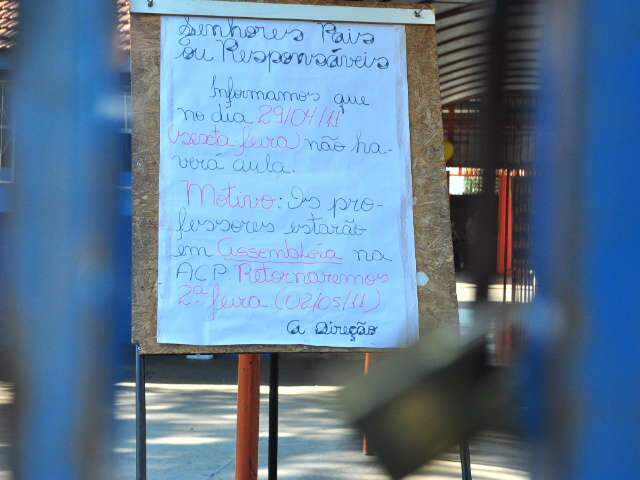 Senhores Pais
ou Responsáveis
Informamos que
no dia 29/04/11
(sexta feira) não ha-
verá aula.
Motivo: Os pro-
fessores estarão
em Assembléia na
ACP. Retornaremos
2ª feira (02/05/11)
A Direção